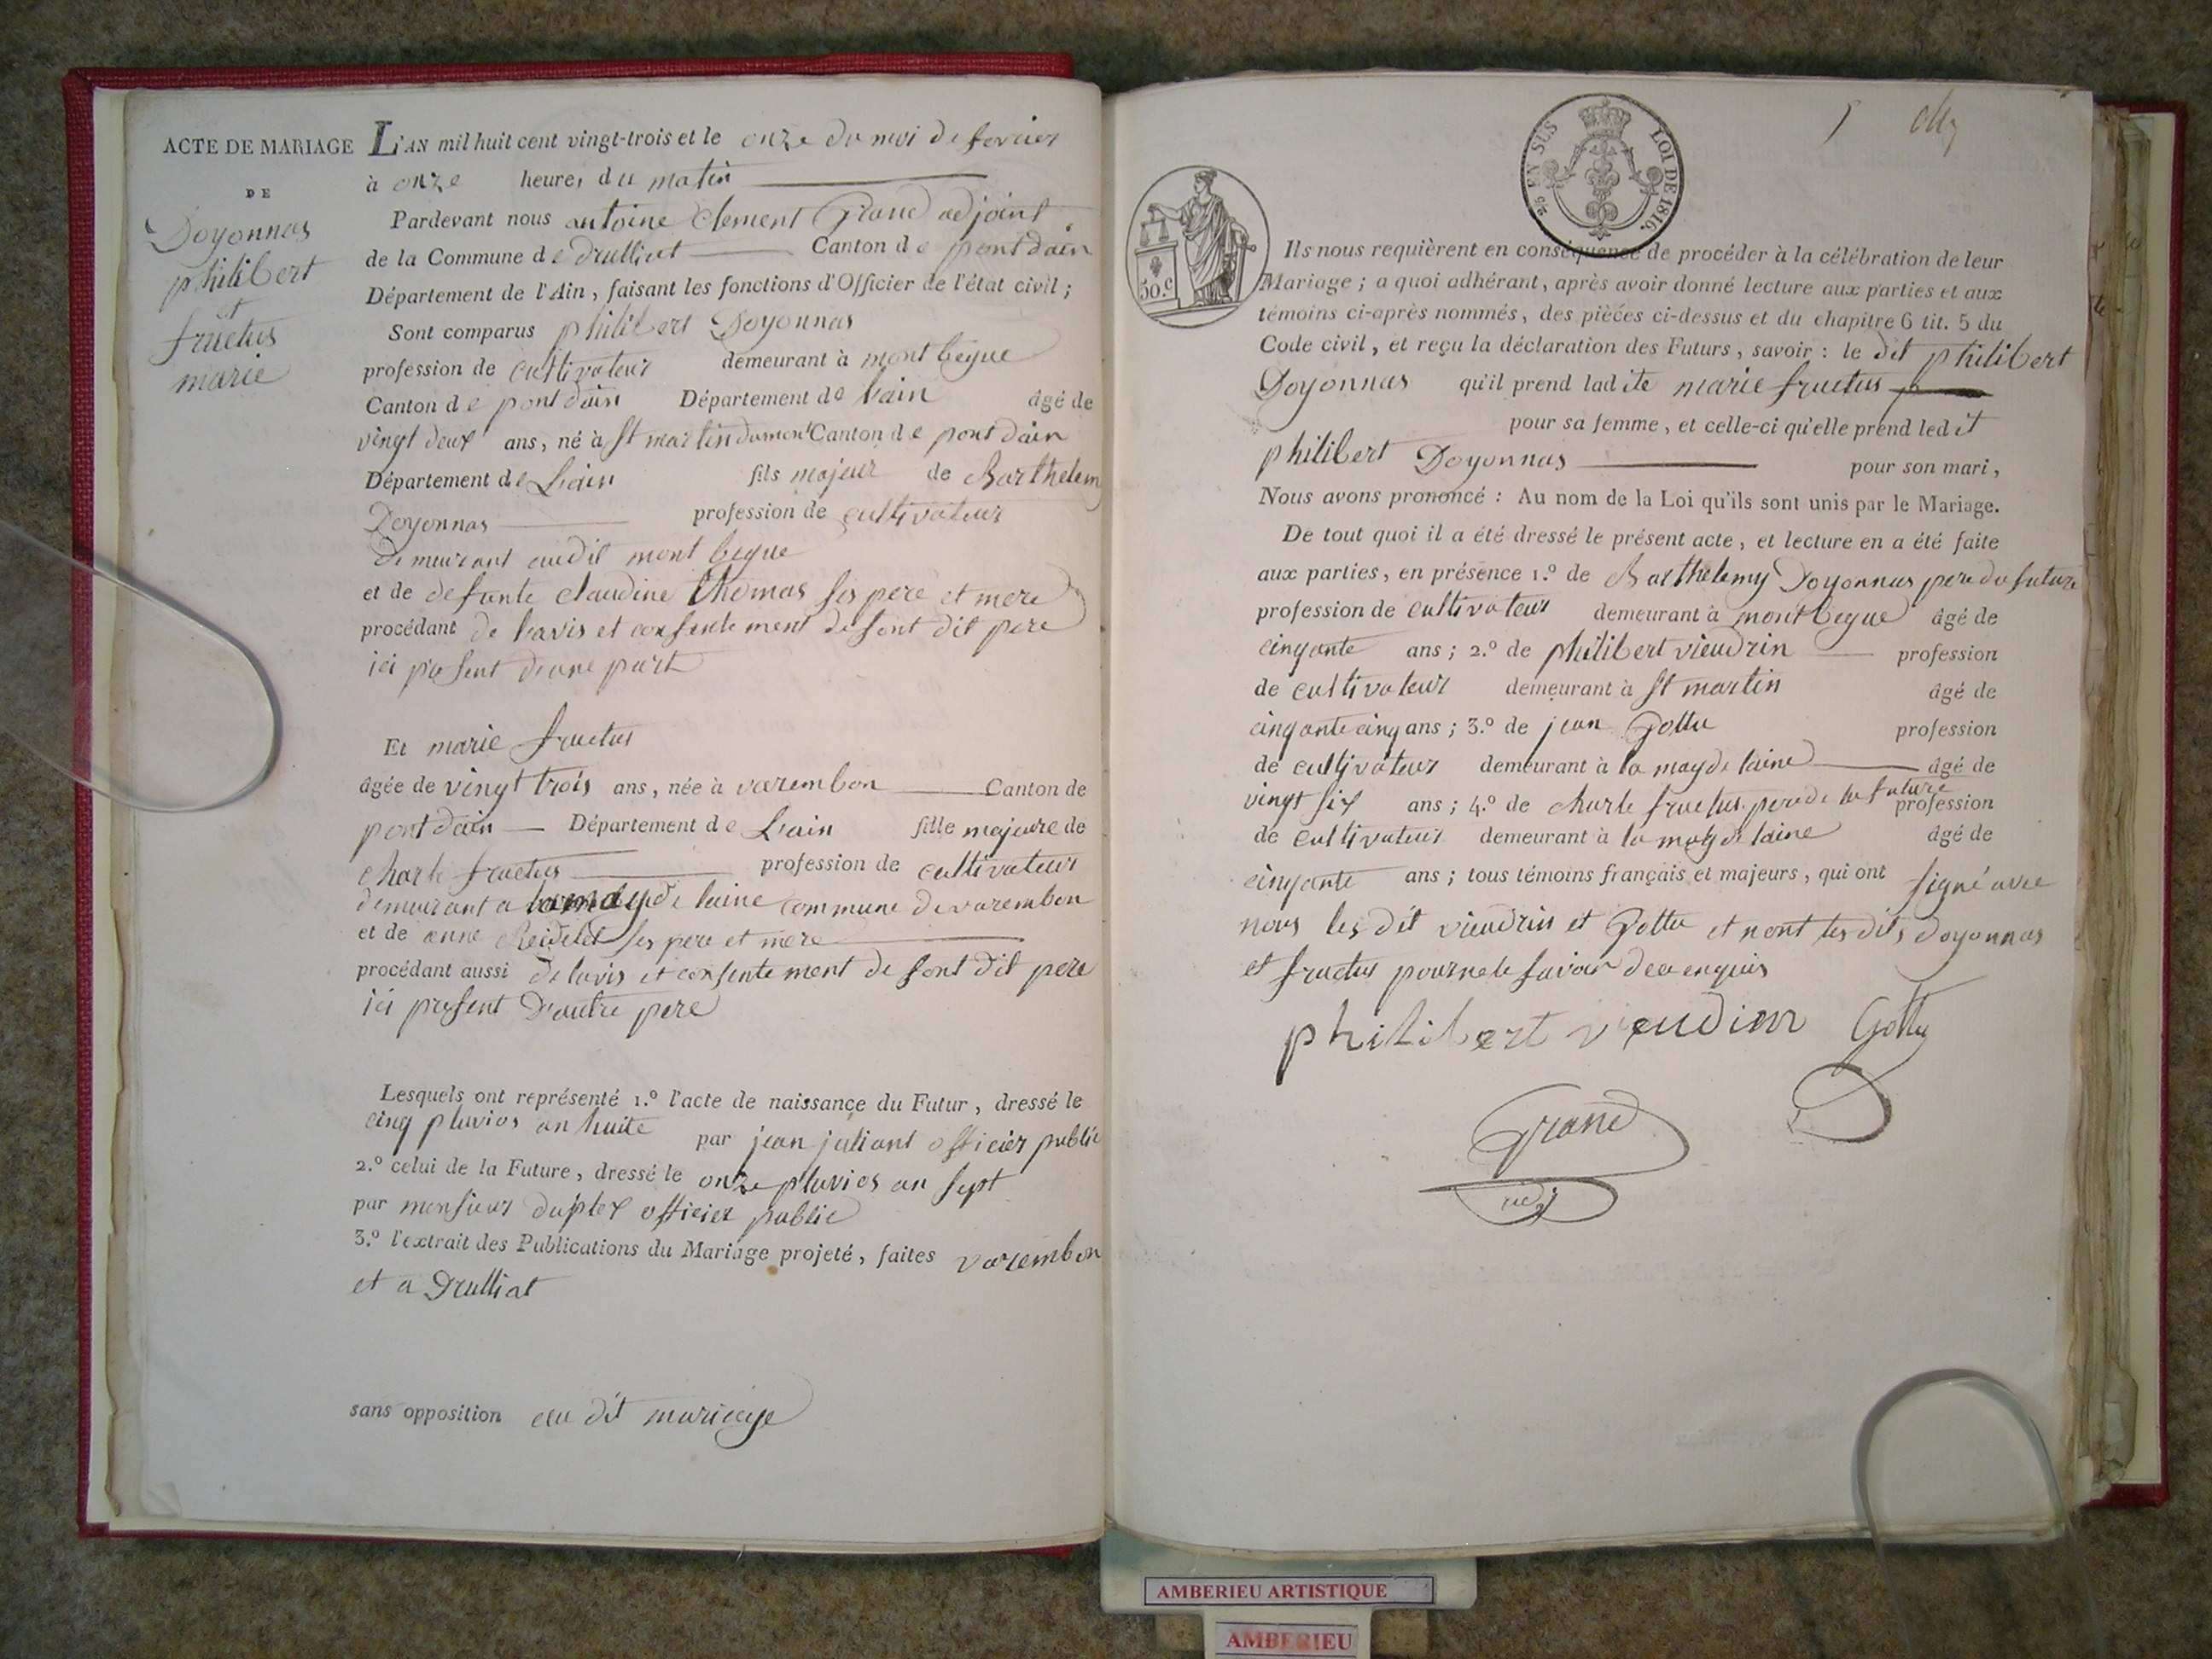 ACTE DE MARIAGE
DE
Doyonnas
philibert
et
fructus
marie
L'AN mil huit cent vingt-trois et le onze du moi de fevrier
à onze heures du matin
Pardevant nous antoine Clement Grand adjoint
de la Commune de Drulliat Canton de pontdain
Département de l'Ain, faisant les fonctions d'Officier de l'état civil ;
Sont comparus philibert Doyonnas
profession de cultivateur demeurant à mont begue
Canton de pontdain Département de lain âgé de
vingt deux ans, né à St martin dumont Canton de pont dain
Département de Lain fils majeur de Barthelemy
Doyonnas profession de cultivateur
demeurant audit mont begue
et de defunte claudine thomas ses pere et mere
procédant de lavis et consentement de sont dit pere
ici present dune part
Et marie fructus
âgée de vingt trois ans, née à varembon Canton de
pont dain Département de Lain fille majeure de
charle fructus profession de cultivateur
demeurant a lamaydelaine commune de varembon
et de anne ses pere et mere
procédant aussi de lavis et consentement de sont dit pere
ici present D'autre pere
Lesquels ont représenté 1.º l'acte de naissance du Futur, dressé le
cinq pluvios an huite par jean juliant officier public
2.º celui de la Future, dressé le onze pluvios an sept
par monsieur duplex officier public
3.º l'extrait des Publications du Mariage projeté, faites varembon
et a Drulliat
sans opposition au dit mariage
5
EN SUS LOI DE 1816.
50.c
Ils nous requièrent en conséquence de procéder à la célébration de leur
Mariage ; a quoi adhérant, après avoir donné lecture aux parties et aux
témoins ci-après nommés, des pièces ci-dessus et du chapitre 6 tit. 5 du
Code civil, et reçu la déclaration des Futurs, savoir : le dit philibert
Doyonnas qu'il prend ladite marie fructus
pour sa femme, et celle-ci qu'elle prend ledit
philibert Doyonnas pour son mari,
Nous avons prononcé : Au nom de la Loi qu'ils sont unis par le Mariage.
De tout quoi il a été dressé le présent acte, et lecture en a été faite
aux parties, en présence 1.º de Barthelemy Doyonnas pere du future
profession de cultivateur demeurant à mont begue âgé de
cinqante ans ; 2.º de philibert vieudrin profession
de cultivateur demeurant à St martin âgé de
cinqante cinq ans ; 3.º de jean Gottu profession
de cultivateur demeurant à la maydelaine âgé de
vingt six ans ; 4.º de charle fructus pere de la future profession
de cultivateur demeurant à la maydelaine âgé de
cinqante ans ; tous témoins français et majeurs, qui ont signé avec
nous les dit vieudrin et Gottu et nont les dits doyonnas
et fructus pour ne le savoir de ce enquis
philibert vieudrin Gottu
Grand
adj
AMBERIEU ARTISTIQUE
AMBERIEU